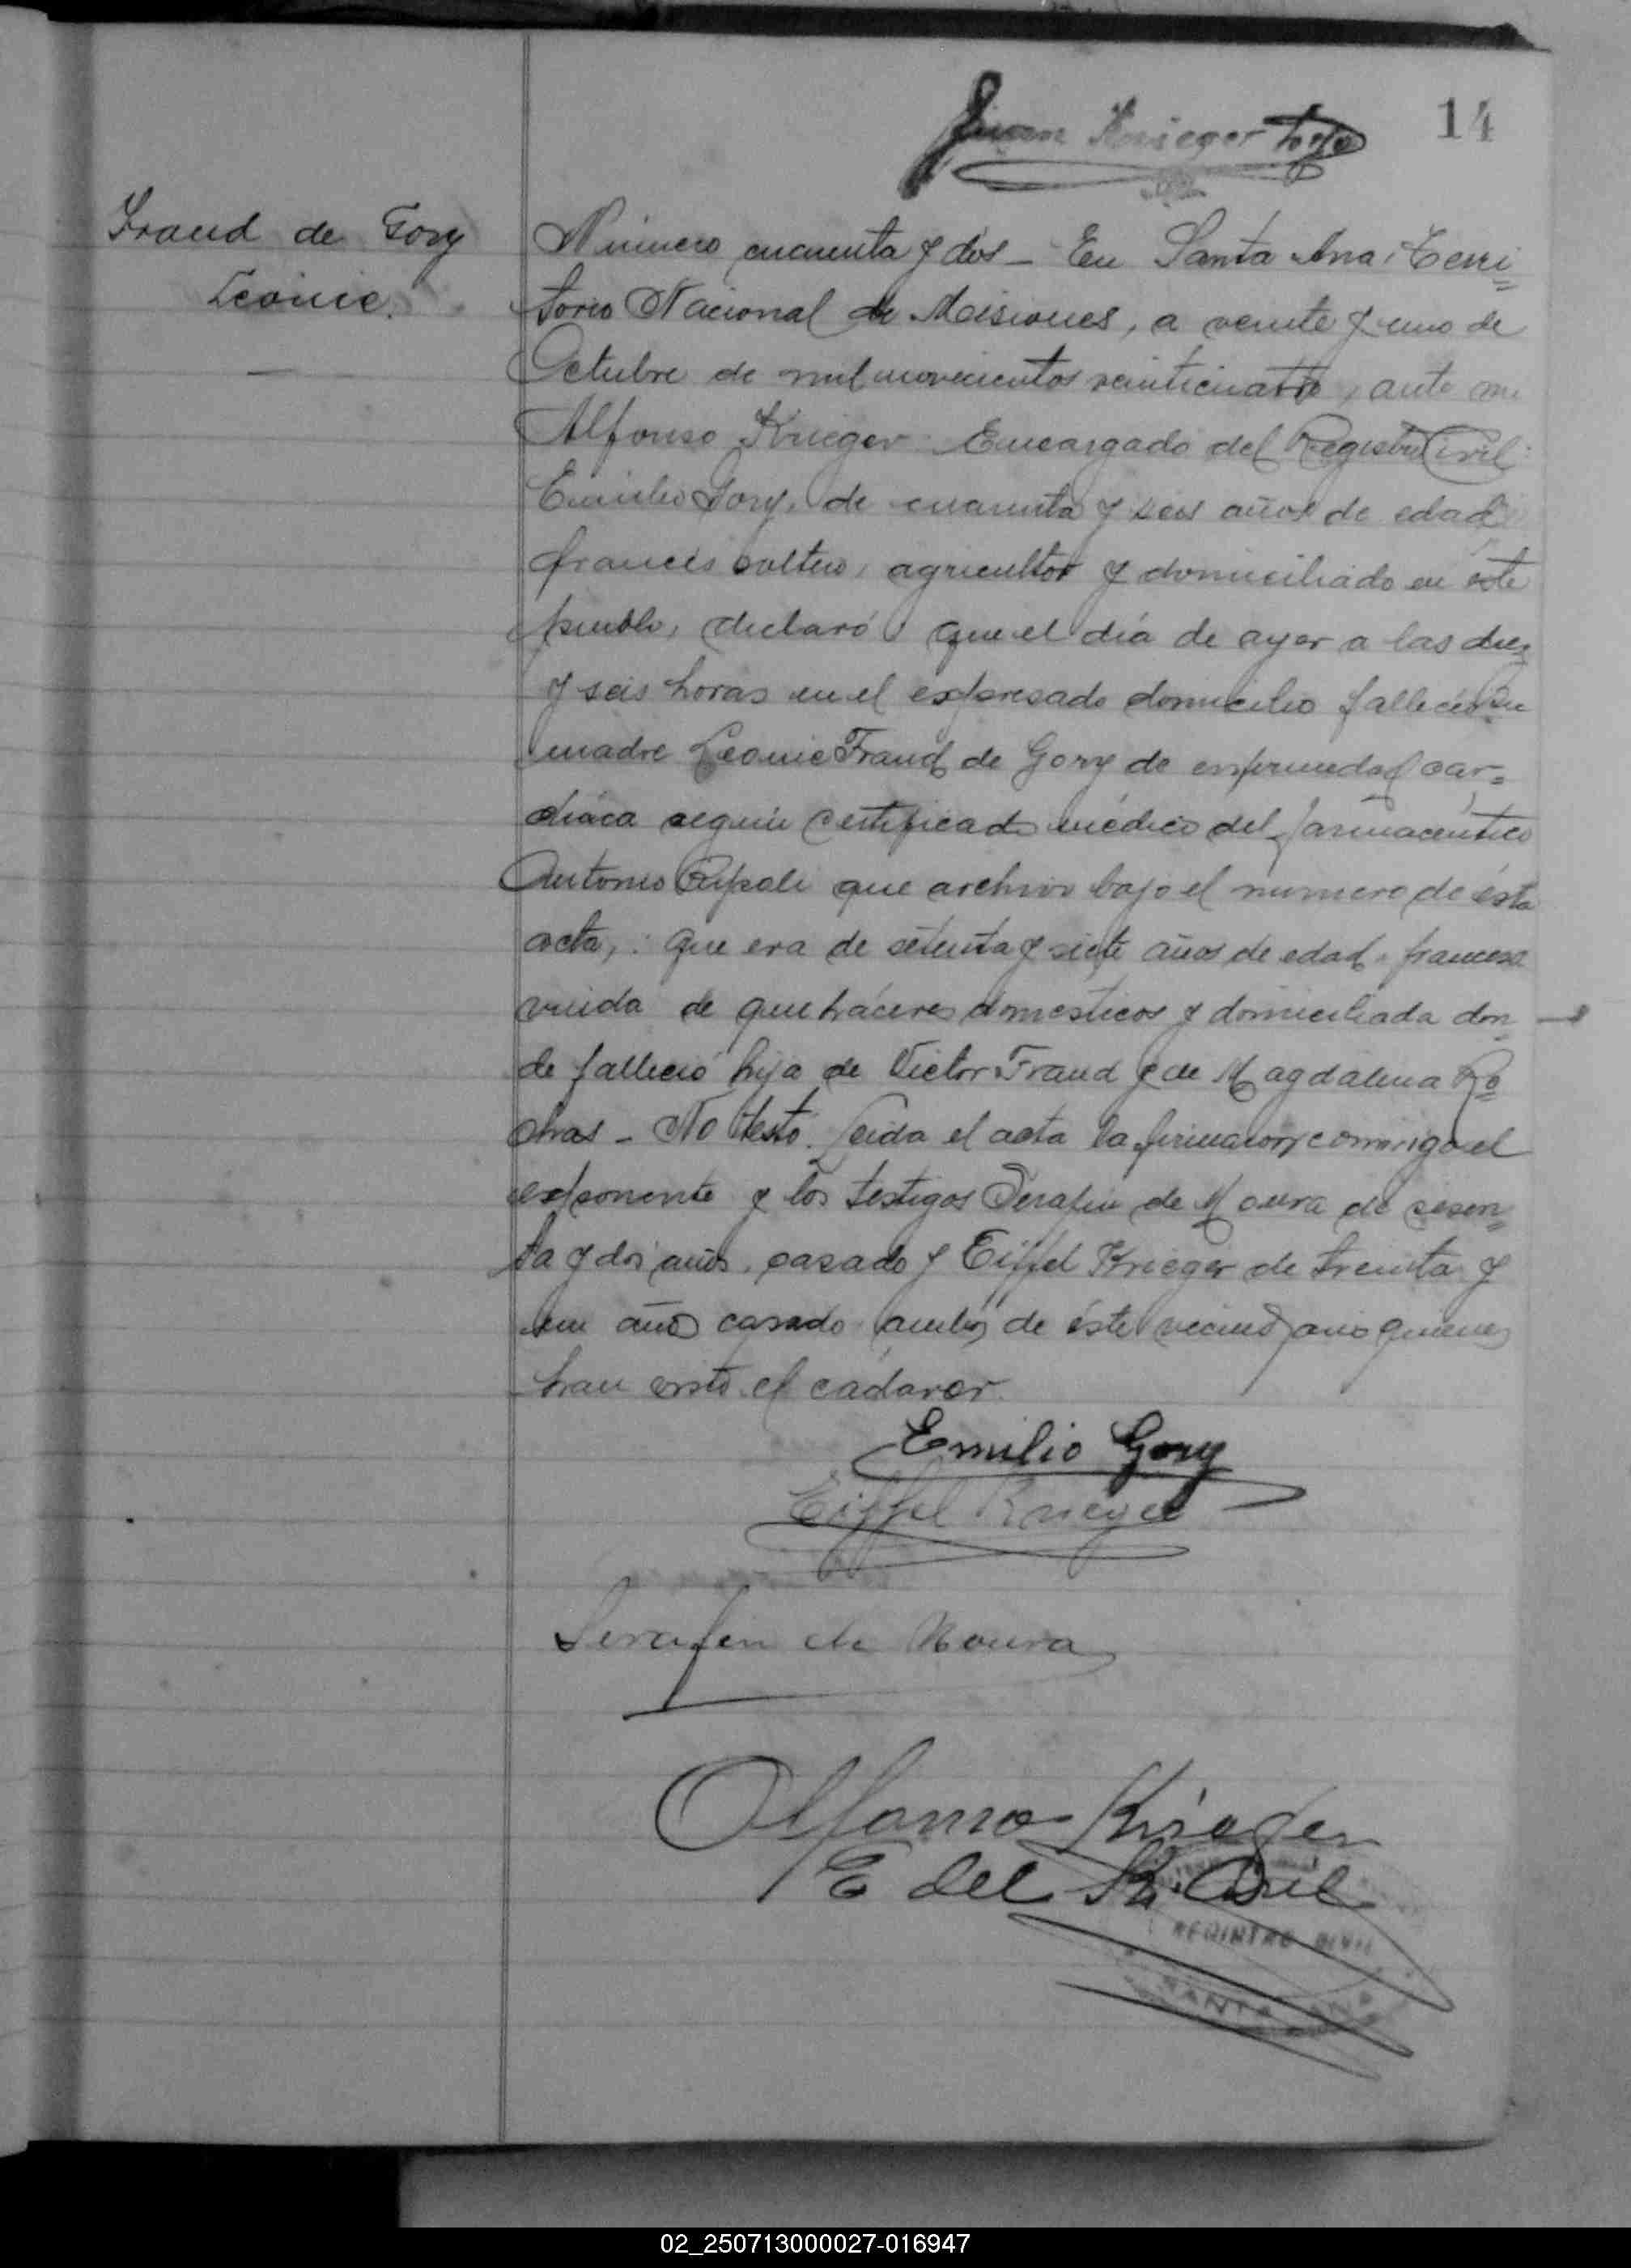 14
Juan Krieger
Fraud de Gory
Leonie.
Número cincuenta y dos - En Santa Ana, Terri=
torio Nacional de Misiones, a veinte y uno de
Octubre de mil novecientos veinticuatro, ante mi
Alfonso Krieger Encargado del Registro Civil
Emilio Gory, de cuarenta y seis años de edad
francés soltero, agricultor y domiciliado en este
pueblo, declaró: que el día de ayer a las diez
y seis horas en el expresado domicilio falleció su
madre Leonie Fraud de Gory de enfermedad car=
díaca según certificado médico del farmacéutico
Antonio Ripoli que archivo bajo el número de ésta
acta, que era de setenta y siete años de edad, francesa
viuda de quehaceres domésticos y domiciliada don=
de falleció hija de Victor Fraud y de Magdalena Ro=
chas - No testó. Leida el acta la firmaron conmigo el
exponente y los testigos Serafin de Moura de sesen=
ta y dos años, casado y Eiffel Krieger de treinta y
un año casado ambos de éste vecindario quienes
han visto el cadaver.
Emilio Gory
Eiffel Krieger
Serafin de Moura
Alfonso Krieger
E del R. Civil
REGISTRO CIVIL
SANTA ANA
02_250713000027-016947